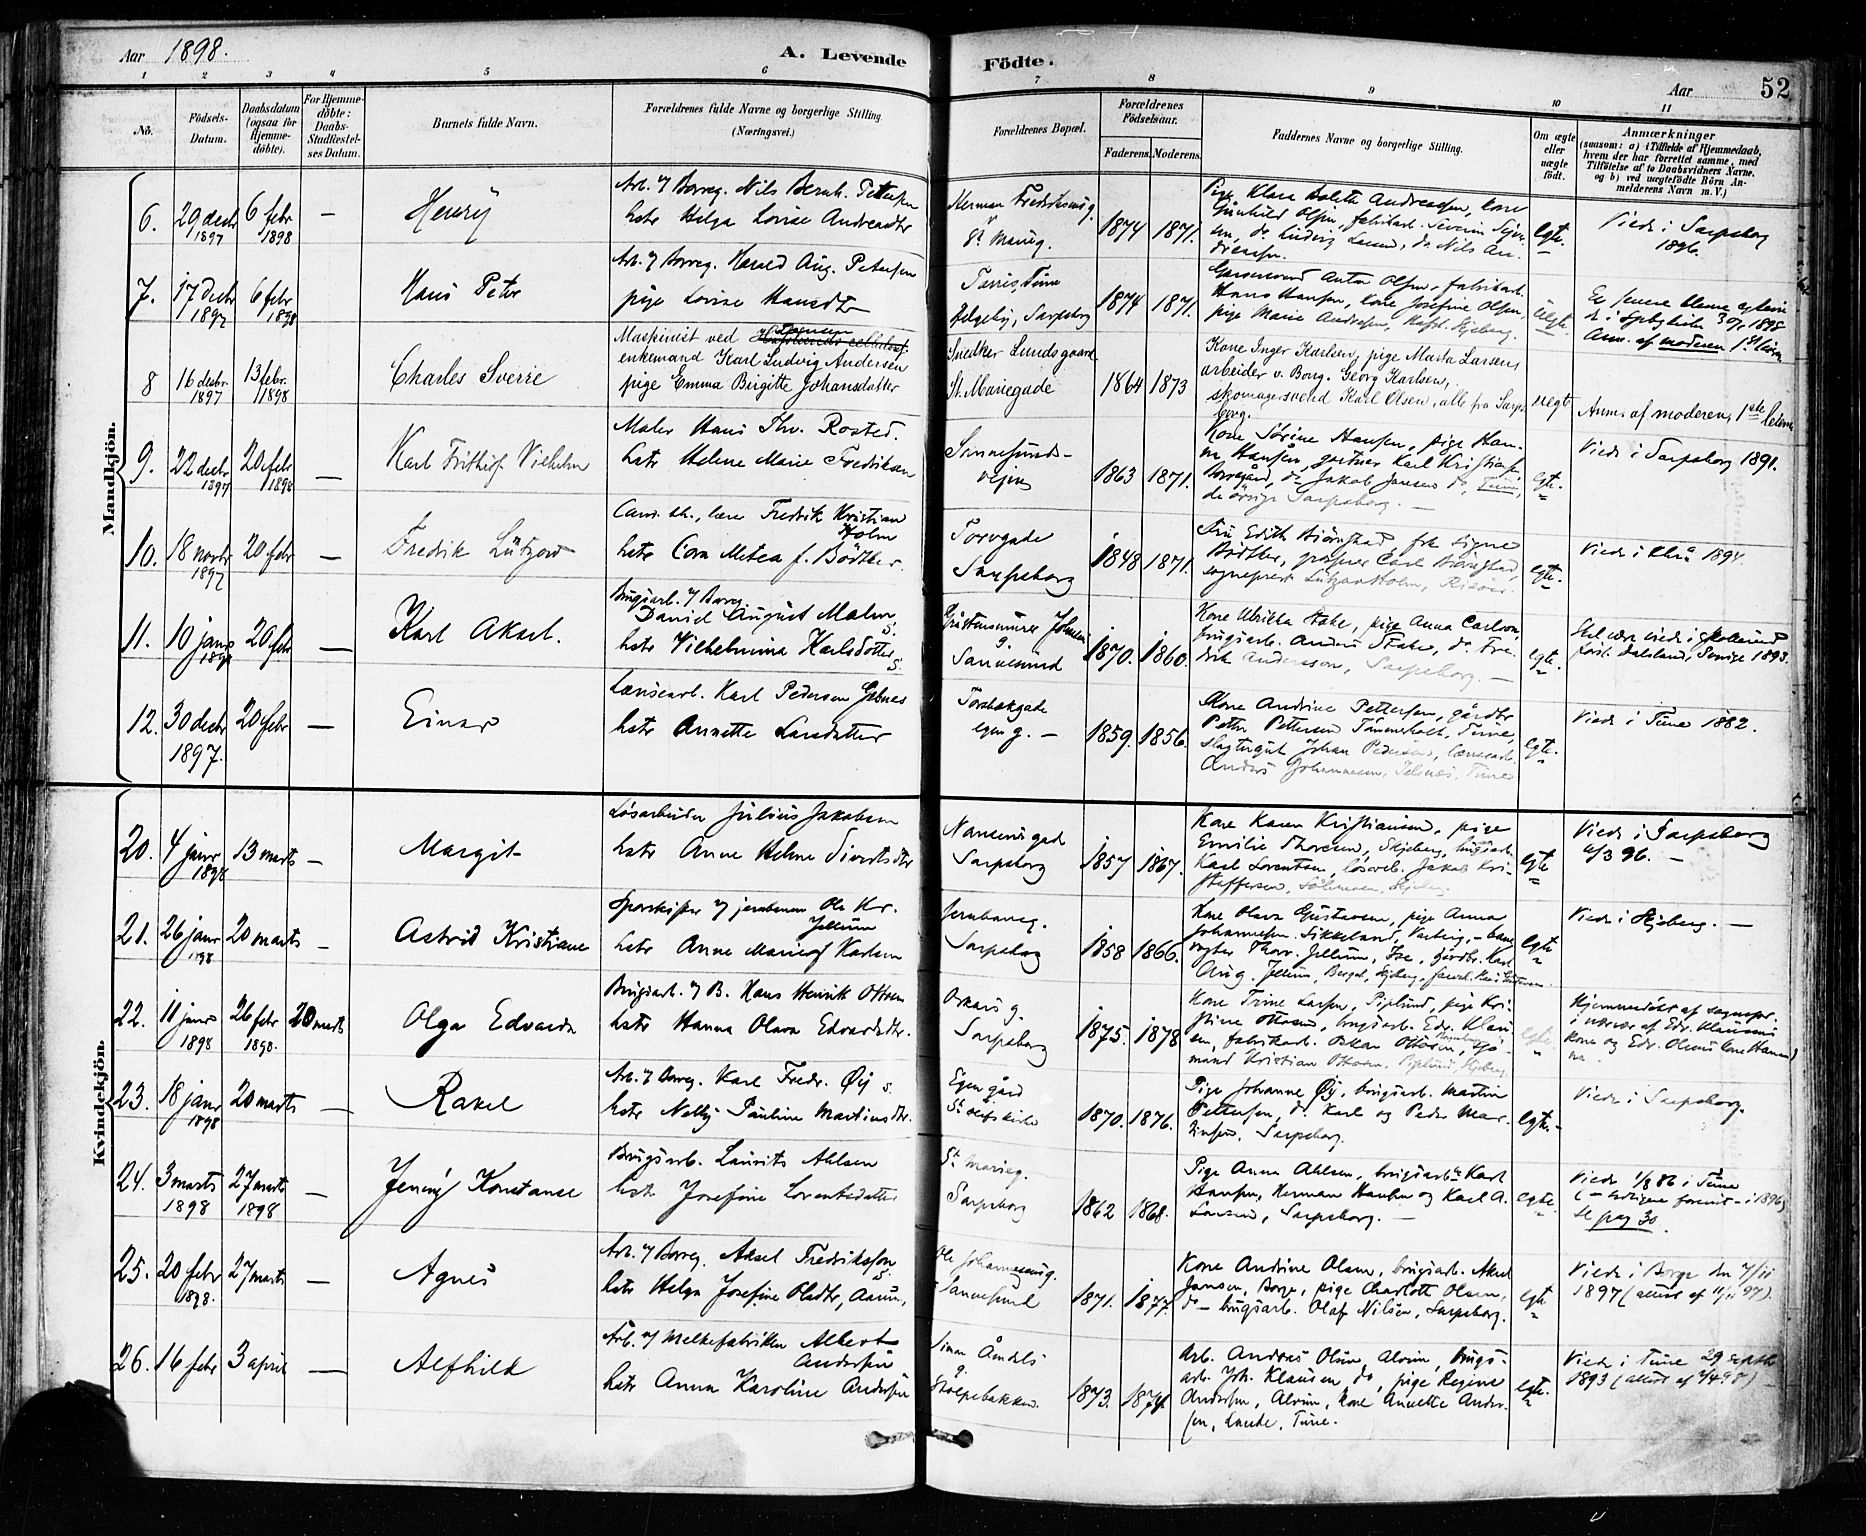 Aar 1898.
A. Levende
Födte.
Aar
52
1 2 3 4 5 6 7 8 9 10 11
No.
Födsels-
Datum.
Daabsdatum
(ogsaa for
Hjemme-
döbte).
For Hjemme-
döbte:
Daabs-
Stadfæstel-
ses Datum.
Barnets fulde Navn.
Forældrenes fulde Navne og borgerlige Stilling.
(Næringsvei.)
Forældrenes Bopæl.
Forældrenes
Födselsaar.
Faderens. Moderens.
Faddernes Navne og borgerlige Stilling.
Om ægte
eller
uægte
født.
Anmærkninger
(saasom: a) i Tilfælde af Hjemmedaab,
hvem der har forrettet samme, med
Tilföielse af to Daabsvidners Navne.
og b) ved uægtefödte Börn An-
melderens Navn m. V.)
Mandkjön.
6. 29 decbr 1897
6 febr 1898
—
Henry
Arb. v/ Borreg. Nils Bernh. Pettersen
hstr Helga Lovise Andreasdtr
St. Marieg.
1874 1871.
Pige Klara Andreassen, kone
Gunhild Olsen, fabrikarb. Severin
egte.
Viede i Sarpsborg
1896.
7. 17 decbr 1897
6 febr 1898
Hans Peter
Arb. v/ Borreg. Harald Aug. Petersen
pige Lovise Hansdtr
Tune
Sarpsborg
1874 1871.
Anton Olsen, fabrikarb.
Hans Hansen, kone Josefine Olsen,
pige Marie Andersen, Skjeberg.
uegte
Anm. af moderen 1ste leierm.
8 16 decbr. 1897
13 febr. 1898
Charles Sverre
Maskinist ved
enkemand Karl Ludvig Andersen
pige Emma Birgitte Johansdatter
Snedker Lundsgaard
St. Mariegade
1864 1873
Kone Inger Karlsen, pige Marta Larsen,
arbeider v. Borg. Georg Karlsen,
skomagersvend Karl Olsen, alle fra Sarps-
borg.
uegte
Anm. af moderen, 1ste leierm.
9. 22 decbr 1897
20 febr 1898
—
Karl Frithiof Vilhelm
Maler Hans Thv. Rosted.
hstr Helene Marie Fredriksen
Sannesunds-
vejen
1863 1871.
Kone Sørine Hansen, pige Han-
na Hansen, gartner Karl Kristiansen
Borregård, do Jakob Jansen do, Tune,
de øvrige Sarpsborg. —
egte.
Viede i Sarpsborg 1891.
10. 18 novbr 1897
20 febr
—
Fredrik Lützow
Cand. th., lærer Fredrik Kristian
Holm
hstr Cora Metea f. Bödtker.
Torvgade
Sarpsborg
1848 1871.
Fru Edith Björnstad, frk Signe
Bödtker, Carl Björnstad,
sogneprest Lützow Holm, Risør.
egte.
Viede i Kra 1894.
11. 10 janr 1898
20 febr
—
Karl Aksel.
Brugsarb. v/ Borreg.
Daniel August Malm S.
hstr Vilhelmina Karlsdotter S.
Sannesund
1870. 1860.
Kone Ulrikka Stake, pige Anna Carlson,
brugsarb. Anders Stake, do Fre-
drik Andersson, Sarpsborg. —
egte.
Dalsland, Sverige 1893.
12. 30 decbr 1897.
20 febr
—
Einar
Lænsearb. Karl Pedersen
hstr Annette Larsdatter
Torsbækgade
egen g. —
1859. 1856.
Kone Andrine Pettersen, gårdbr
Petter Pettersen Tune,
slagtergut Johan Pedersen, lænsearb.
Anders Johannesen, Tune
egte.
Viede i Tune 1882.
Kvindekjön.
20. 4 janr 1898
13 marts
—
Margit
Løsarbeider Julius Jakobsen
hstr Anne Helene Sivertsdtr
Nansensgad
Sarpsborg
1857 1867.
Kone Karen Kristiansen, pige
Emilie Thoresen, Skjeberg, brugsarb.
Karl Lorentsen, løsarb. Jakob Kri-
stoffersen, Skjeberg.
egte
Viede i Sarpsborg
6/3 96. —
21. 26 janr 1898
20 marts
—
Astrid Kristiane
Sporskifter v/ jernbanen Ole Kr.
Jellum
hstr Anne Marie Karlsen
Jernbaneg.
Sarpsborg
1858 1866.
Kone Olava Gustavsen, pige Anna
Johannesen Sikkeland, Varteig, bane-
vogter Thorv. Jellum, Ise, gårdbr. Karl
Aug. Jellum, Skjeberg
egte
Viede i Skjeberg. —
22. 11 janr 1898
26 febr 1898.
20 marts
Olga Edvarda
Brugsarb. v/ B. Hans Henrik Ottosen
hstr Hanna Olava Edvardsdtr.
Oskars g.
Sarpsborg
1875. 1878
Kone Trine Larsen, Piplund, pige Kri-
stine Ottosen, brugsarb. Edv. Klau-
sen, fabrikarb. Oskar Ottosen, sjø-
mand Kristian Ottosen, Piplund, Skjeberg
egte
Hjemmedøbt af sognepr.
i nærvær af Edv. Klausens
kone og Edv. Olsens kone Hanna
23. 18 janr 1898
20 marts
—
Rakel
Arb. v/ Borreg. Karl Fredr. Øy S.
hstr Nelly Pauline Martinsdtr.
Egen gård
St. Olafs
1870. 1876.
Pige Johanne Øy, brugsarb. Martin
Pettersen, do Karl og Peder Mar-
tinsen, Sarpsborg.
egte.
Viede i Sarpsborg.
24. 3 marts 1898
27 marts 1898
—
Jenny Konstanse
Brugsarb. Laurits Ahlsen
hstr Josefine Lorentsdatter
St. Marieg.
Sarpsborg
1862 1868.
Pige Anna Ahlsen, brugsarb. Karl
Hansen, Herman Hansen og Karl A.
Larsen, Sarpsborg. —
egte
Viede 1/8 86 i Tune
Se pag 30.
25. 20 febr 1898.
27 marts
—
Agnes
Arb. v/ Borreg. Aksel Fredriksson S.
hstr Helga Josefine Olsdtr,
Ole Johannesensg.
Sannesund
1871. 1877.
Kone Andrine Olsen, brugsarb. Aksel
Jansen, Borge, pige Charlott Olsen,
do — brugsarb. Olaf Nilsen, Sarpsborg.
egte
Viede i Borge den 7/11
1897 (attest af 11/11 97).
26. 16 febr
3 april
—
Alfhild
Arb. v/ Melkefabriken Albert
Andersen
hstr Anna Karoline Andersen
Simen Åmdals
g.
Stolpebakken.
1873. 1874.
Arb. Andreas Olsen, Alvim, brugs-
arb. Joh. Klausen do, pige Regine
Andersen, Alvim, kone Annette Ander-
sen, Lande, Tune.
egte.
Viede i Tune 29 septbr
1893 (attest af 2/4 98) —